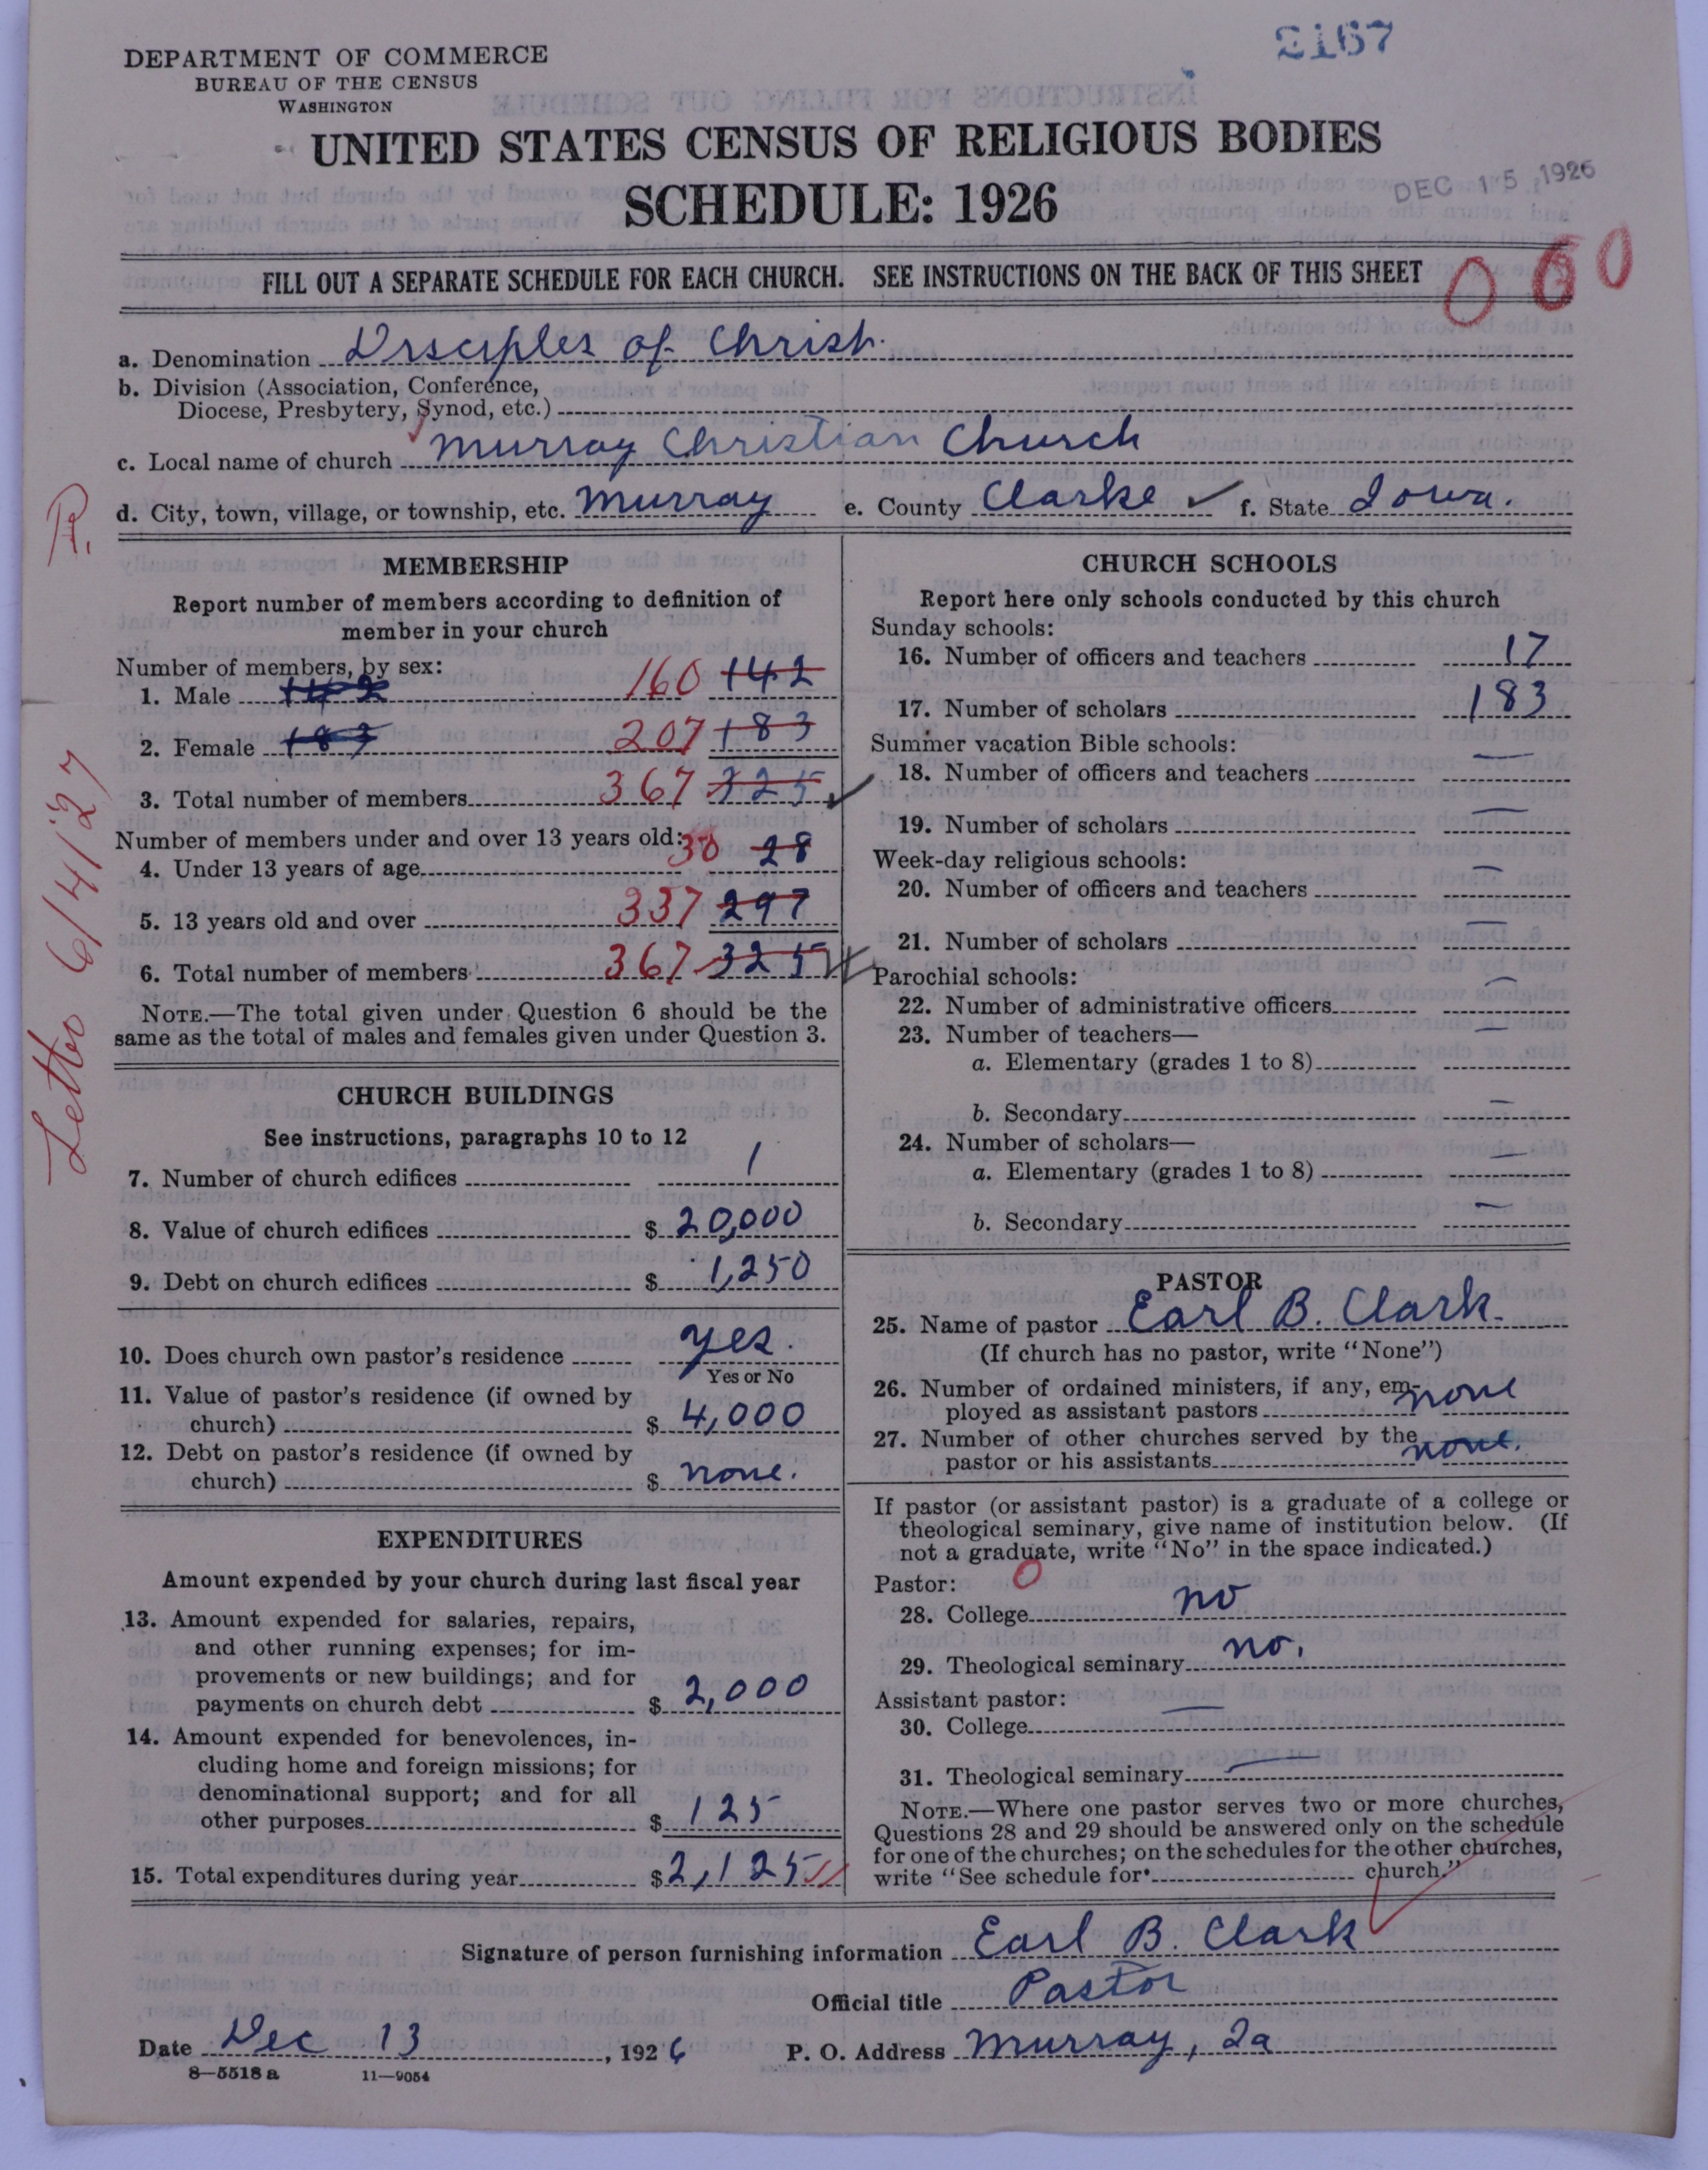 2167
DEPARTMENT OF COMMERCE
BUREAU OF THE CENSUS
WASHINGTON
UNITED STATES CENSUS OF RELIGIOUS BODIES
SCHEDULE: 1926
DEC 15 1926
FILL OUT A SEPARATE SCHEDULE FOR EACH CHURCH. SEE INSTRUCTIONS ON THE BACK OF THIS SHEET
0 6 0
a. Denomination Disciples of Christ.
b. Division (Association, Conference,
Diocese, Presbytery, Synod, etc.)
c. Local name of church Murray Christian Church
d. City, town, village, or township, etc. Murray e. County Clarke ✓ f. State Iowa.
R.
Letter 6/4/27
MEMBERSHIP
Report number of members according to definition of
member in your church
Number of members, by sex:
1. Male 142 160 142
2. Female 183 207 183
3. Total number of members 367 325 ✓
Number of members under and over 13 years old:
4. Under 13 years of age 30 28
5. 13 years old and over 337 297
6. Total number of members 367 325
NOTE.—The total given under Question 6 should be the
same as the total of males and females given under Question 3.
CHURCH BUILDINGS
See instructions, paragraphs 10 to 12
7. Number of church edifices 1
8. Value of church edifices $ 20,000
9. Debt on church edifices $ 1,250
10. Does church own pastor's residence yes.
Yes or No
11. Value of pastor's residence (if owned by
church) $ 4,000
12. Debt on pastor's residence (if owned by
church) $ none.
EXPENDITURES
Amount expended by your church during last fiscal year
13. Amount expended for salaries, repairs,
and other running expenses; for im-
provements or new buildings; and for
payments on church debt $ 2,000
14. Amount expended for benevolences, in-
cluding home and foreign missions; for
denominational support; and for all
other purposes $ 125
15. Total expenditures during year $ 2,125
CHURCH SCHOOLS
Report here only schools conducted by this church
Sunday schools:
16. Number of officers and teachers 17
17. Number of scholars 183
Summer vacation Bible schools:
18. Number of officers and teachers —
19. Number of scholars —
Week-day religious schools:
20. Number of officers and teachers —
21. Number of scholars —
Parochial schools:
22. Number of administrative officers —
23. Number of teachers—
a. Elementary (grades 1 to 8) —
b. Secondary —
24. Number of scholars—
a. Elementary (grades 1 to 8) —
b. Secondary —
PASTOR
25. Name of pastor Earl B. Clark.
(If church has no pastor, write "None")
26. Number of ordained ministers, if any, em-
ployed as assistant pastors none
27. Number of other churches served by the
pastor or his assistants none.
If pastor (or assistant pastor) is a graduate of a college or
theological seminary, give name of institution below. (If
not a graduate, write "No" in the space indicated.)
Pastor: 0
28. College no
29. Theological seminary no.
Assistant pastor:
30. College —
31. Theological seminary —
NOTE.—Where one pastor serves two or more churches,
Questions 28 and 29 should be answered only on the schedule
for one of the churches; on the schedules for the other churches,
write "See schedule for church."
Signature of person furnishing information Earl B. Clark
Official title Pastor
Date Dec 13, 1926 P. O. Address Murray, Ia
8—5518 a 11—9054